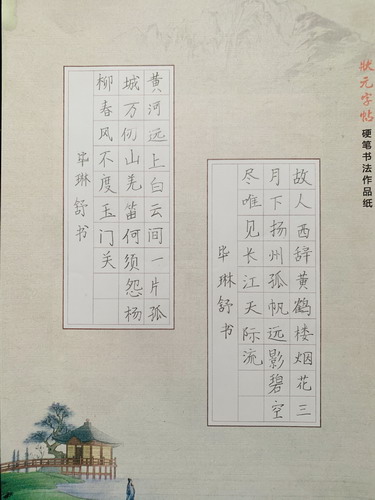 状元字帖
硬笔书法作品纸
故人西辞黄鹤楼烟花三
月下扬州孤帆远影碧空
尽唯见长江天际流
毕琳舒书
黄河远上白云间一片孤
城万仞山羌笛何须怨杨
柳春风不度玉门关
毕琳舒书